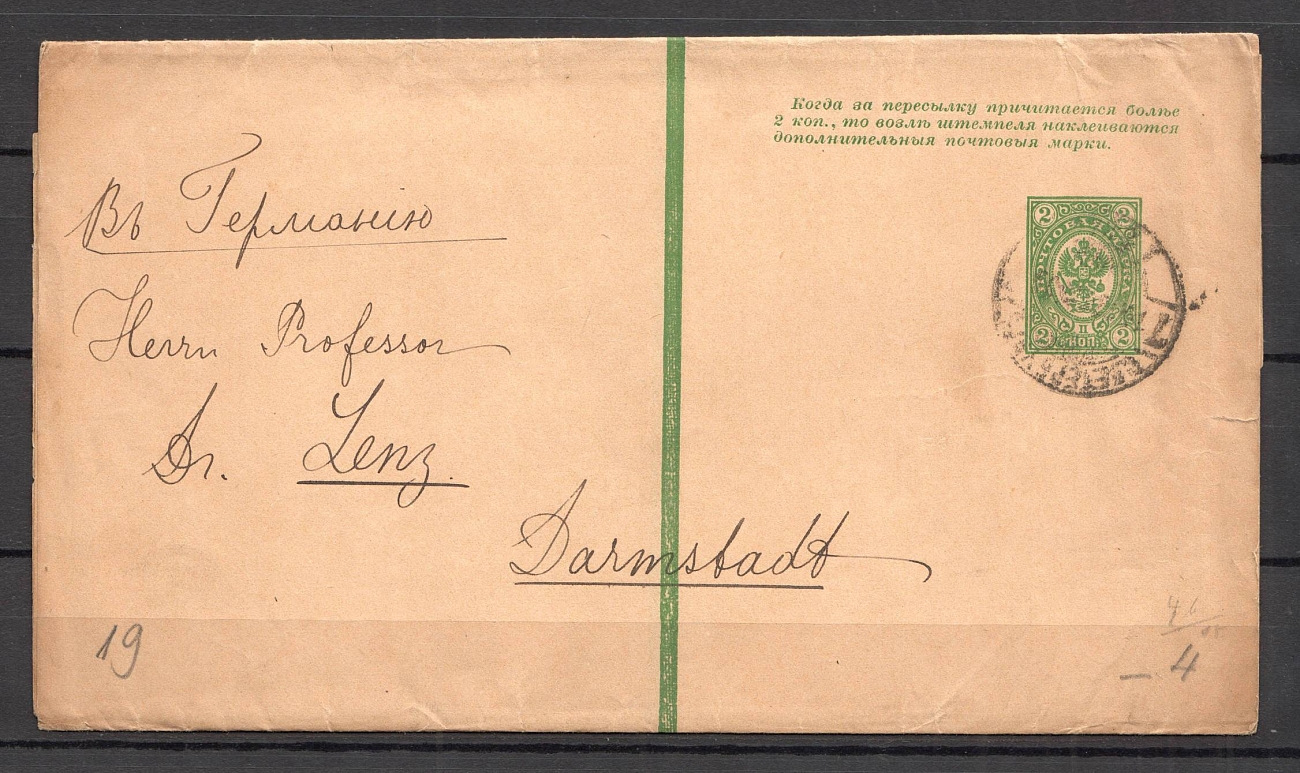 Когда за пересылку причитается болѣе
2 коп., то возлѣ штемпеля наклеиваются
дополнительныя почтовыя марки.
Въ Германію
2 2
ПОЧТОВАЯ МАРКА
2 КОП. 2
Herrn Professor
Dr. Lenz.
Darmstadt
19
4